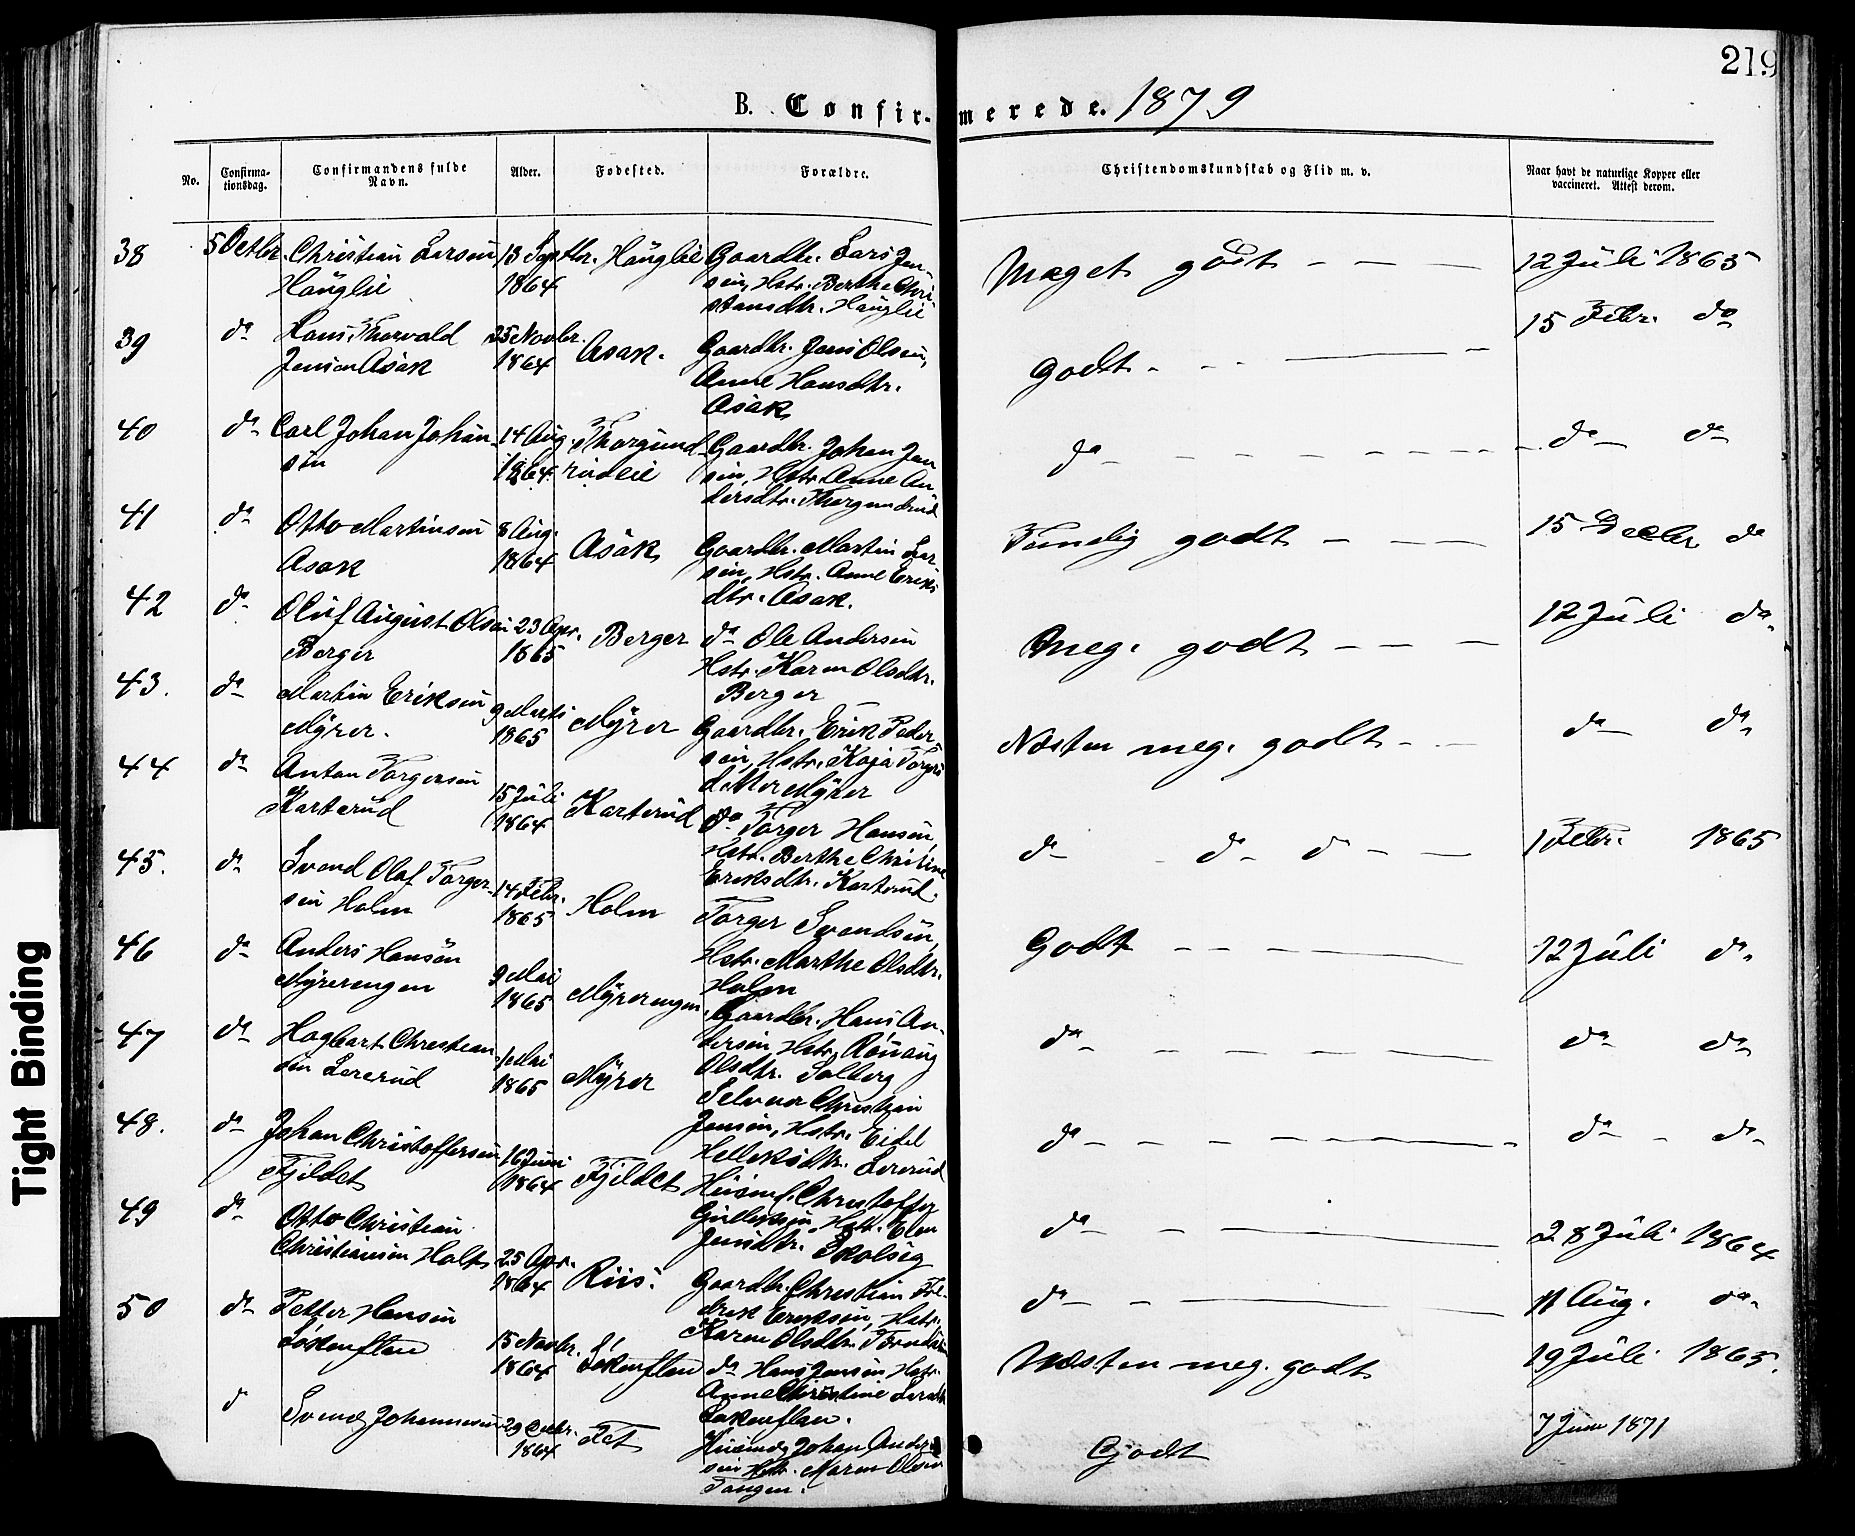 219
B. Confir-merede. 1879
No.
Confirma-
tionsdag.
Confirmandens fulde
Navn.
Alder.
Fødested.
Forældre.
Christendomskundskab og Flid m. v.
Naar havt de naturlige Kopper eller
vaccineret. Attest derom.
38 5 Octbr. Christian Larsen 13 Septbr. Hauglie Gaardbr. Lars Jen-
Hauglie 1864 sen, Hstr. Berthe Chri-
stiansdtr. Hauglie
Meget godt - - - 12 Juli 1865
39 do Hans Thorvald 25 Novbr. Asak. Gaardbr. Jens Olsen,
Jensen Asak 1864 Anne Hansdtr.
Asak
Godt - - - 15 Febr. do
40 do Carl Johan Johan- 14 Aug. Thorgund- Gaardbr. Johan Jen
sen 1864. rudeie sen, Hstr. Anne An
dersdtr. Thorgundrud
do - - - do do
41 do Otto Martinsen 8 Aug. Asak Gaardbr. Martin Lar
Asak 1864 sen, Hstr. Anne Eriks
dtr. Asak.
Temelig godt - - - 15 Decbr do
42 do Oluf August Olsen 23 Apr. Berger do Ole Andersen
Berger 1865 Hstr. Karen Olsdtr.
Berger
Meg. godt - - - 12 Juli do
43. do Martin Eriksen 9 Marts Myrer Gaardbr. Erik Peder
Myrer. 1865 sen, Hstr. Kaja Torgers
datter Myrer
Næsten meg. godt - - do do
44 do Anton Torgersen 15 Juli Karterud do Torger Hansen,
Karterud 1864 Hstr. Berthe Christine
Eriksdtr. Karterud.
do - do do - - 1 Febr. 1865
45. do Svend Olaf Torger- 14 Febr. Holm Torger Svendsen,
sen Holm 1865 Hstr. Marthe Olsdtr.
Holm
Godt - - - 12 Juli do
46 do Anders Hansen 9 Mai Myrerengen Gaardbr. Hans An-
Myrerengen 1865 dersen Hstr. Rønaug
Olsdtr. Solberg
do - - - do do
47 do Hagbart Christian 1 Mai Myrer Selveier Christian
sen Lererud 1865 Jensen, Hstr. Eidel
Helleksdtr. Lererud
do - - - do - do
48. do Johan Christoffersen 16 Juni Fjeldet Huusmd. Christoffer
Fjeldet 1864 Gulleksen Hstr. Elen
Jensdtr.
do - - - 28 Juli 1864
49 do Otto Christian 25 Apr. Riis. Gaardbr. Christian Fre-
Christiansen Holt 1864 drik Eriksen, Hstr.
Karen Olsdtr.
do - - - 11 Aug. do
50 do Petter Hansen 15 Novbr. do Hans Jensen Hstr.
1864 Anne Christine
Næsten meg. godt 19 Juli 1865.
d Svend Johannesen 29 Octbr. Fet Huusmd. Johan Ander
1864 sen Hstr. Maren Olsen
Tangen.
Godt 7 Juni 1871
Tight Binding